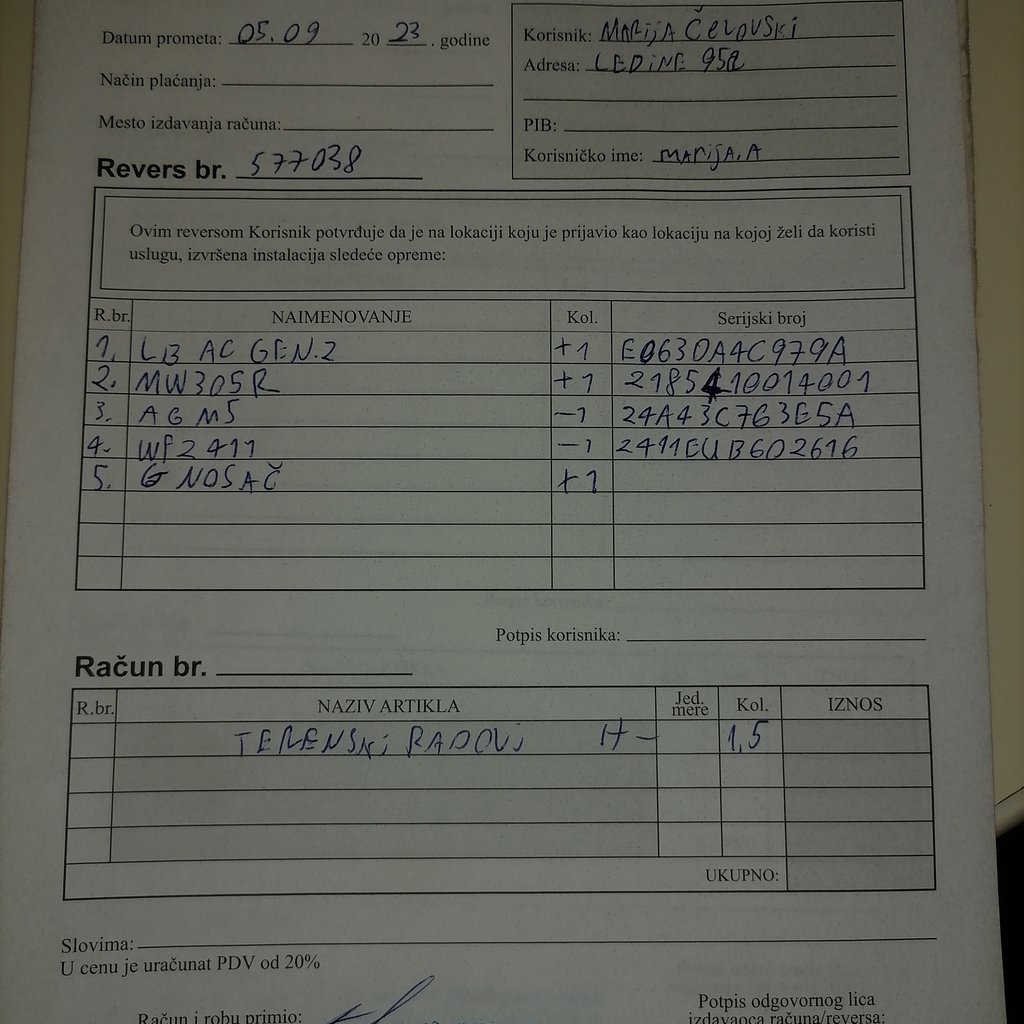 Datum prometa: 05.09 2023. godine
Način plaćanja:
Mesto izdavanja računa:
Revers br. 577038
Korisnik: MARIJA ČELOVSKI
Adresa: LEDINE 95A
PIB:
Korisničko ime: MARIJA.A
Ovim reversom Korisnik potvrđuje da je na lokaciji koju je prijavio kao lokaciju na kojoj želi da koristi
uslugu, izvršena instalacija sledeće opreme:
R.br. NAIMENOVANJE Kol. Serijski broj
1. LB AC GEN.2 +1 E0630A4C979A
2. MW305R +1 2185410014001
3. AG M5 -1 24A43C763E5A
4. WF2411 -1 2411EUB602616
5. G NOSAČ +1
Potpis korisnika:
Račun br.
R.br. NAZIV ARTIKLA Jed. mere Kol. IZNOS
TERENSKI RADOVI H- 1,5
UKUPNO:
Slovima:
U cenu je uračunat PDV od 20%
Račun i robu primio:
Potpis odgovornog lica
izdavaoca računa/reversa: